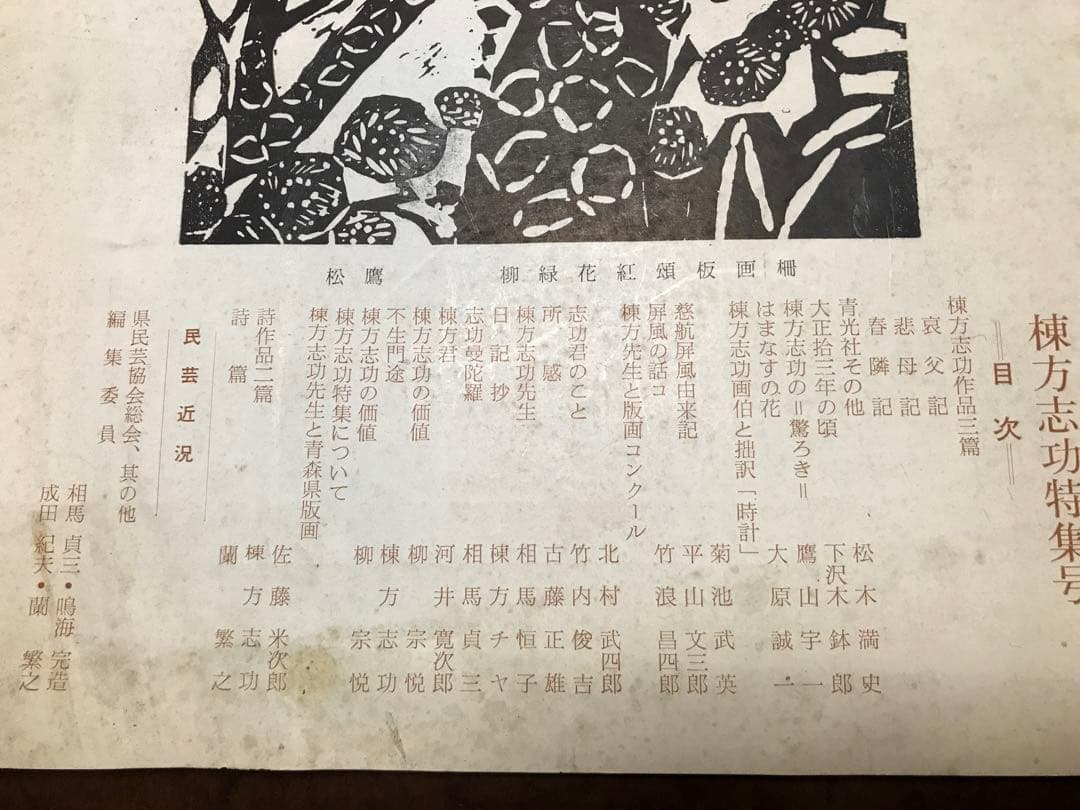 松鷹　柳緑花紅頌板画柵
棟方志功特集号
＝目次＝
棟方志功作品三篇
哀父記
悲母記
春隣記
青光社その他　松木満史
大正拾三年の頃　下沢木鉢郎
棟方志功の＝驚ろき＝　鷹山宇一
はまなすの花　大原誠一
棟方志功画伯と拙訳「時計」　菊池武英
慈航屏風由来記　平山文三郎
屏風の話コ　竹浪昌四郎
棟方先生と版画コンクール　北村武四郎
志功君のこと　竹内俊吉
所感　古藤正雄
棟方志功先生　相馬恒子
日記抄　棟方チヤ
志功曼陀羅　相馬貞三
棟方君　河井寛次郎
棟方志功の価値　柳宗悦
不生門途　棟方志功
棟方志功の価値　柳宗悦
棟方志功特集について
棟方志功先生と青森県版画　佐藤米次郎
詩作品二篇　棟方志功
詩篇　蘭繁之
民芸近況
県民芸協会総会、其の他
編集委員
相馬貞三・鳴海完造
成田紀夫・蘭繁之